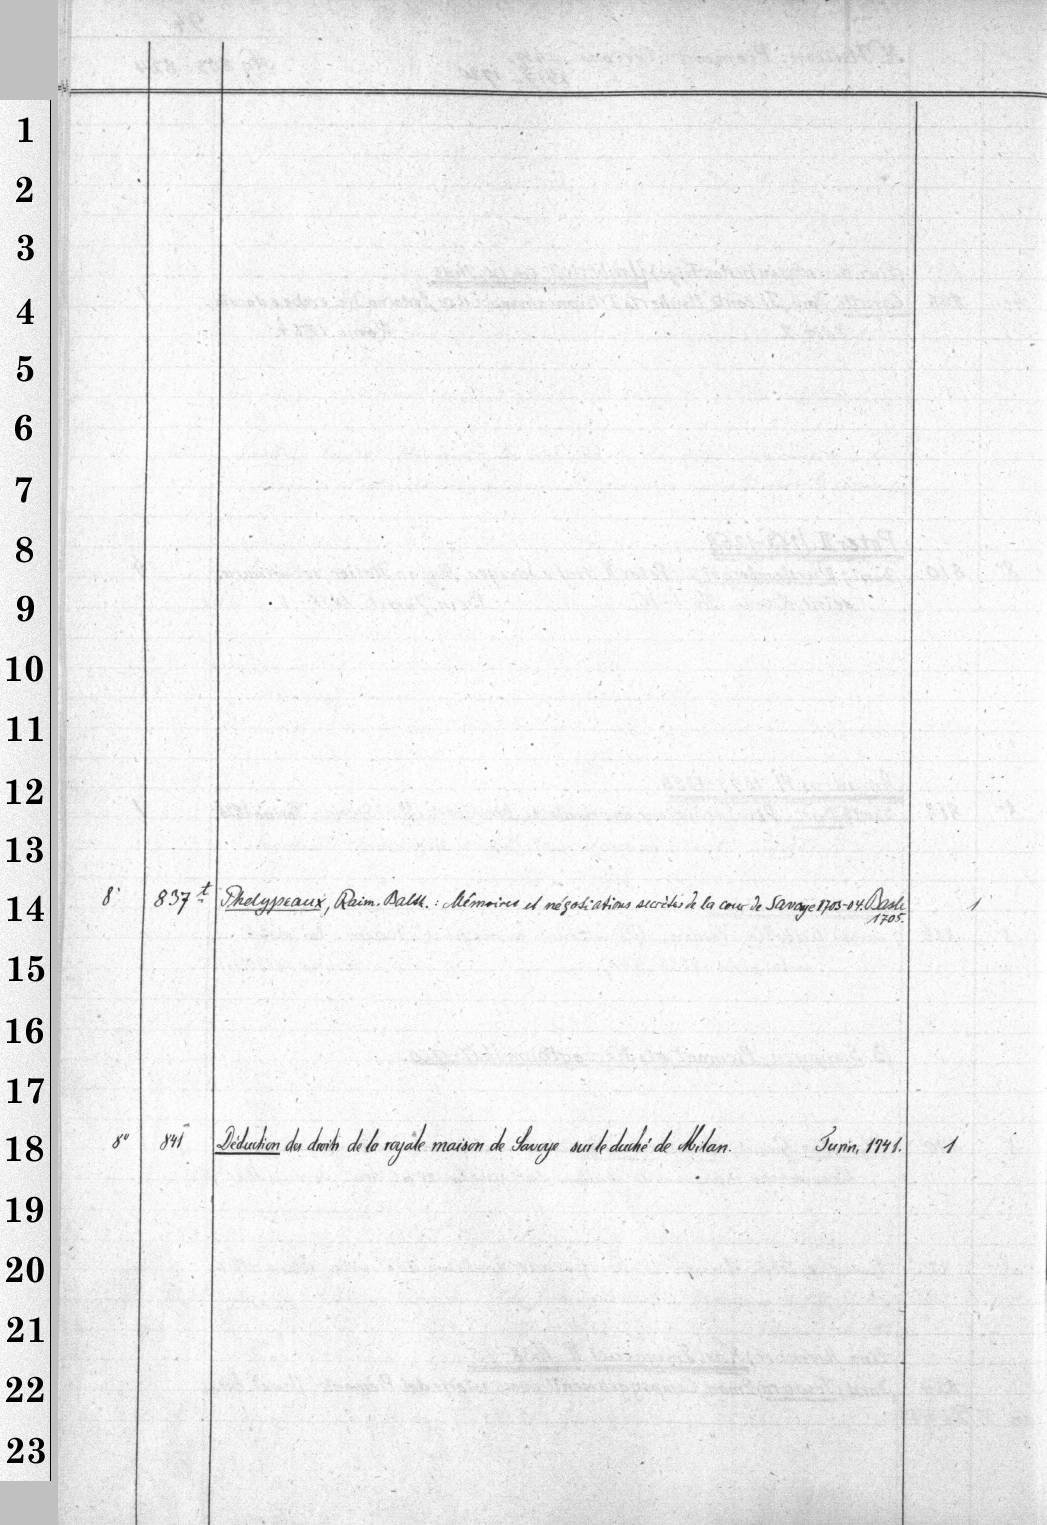 1
2
3
4
5
6
7
8
9
10
11
12
13
14 8° 837t Phelypeaux, Raim. Balth.: Mémoires et négotiations secrètes de la cour de Savoye 1703-04. Basle 1
1705.
15
16
17
18 8° 841 Déduction des droits de la royale maison de Savoye sur le duché de Milan. Turin, 1741. 1
19
20
21
22
23